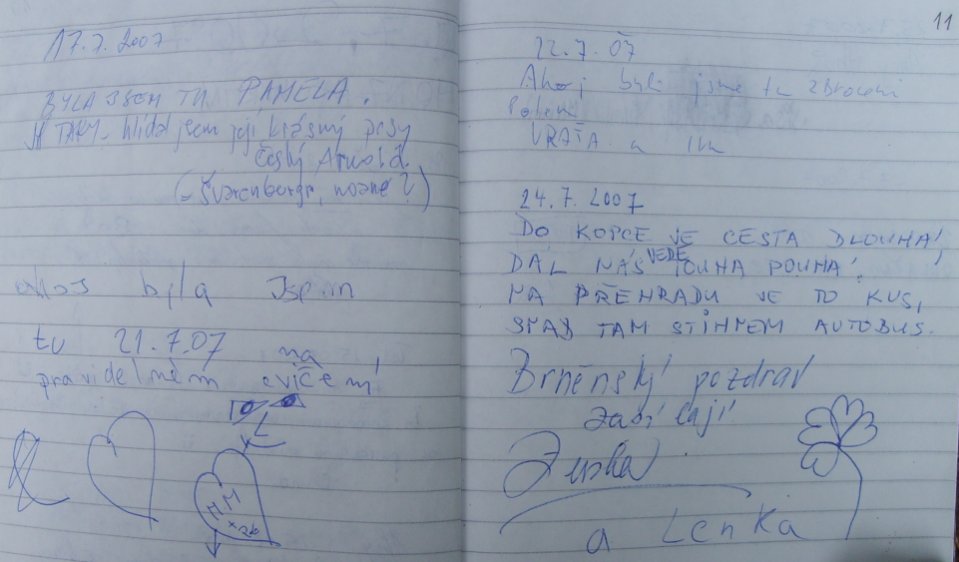 17.7.2007
BYLA JSEM TU PAMELA.
A TAKY hlídal jsem její krásný psy
Český Arnold
Švarenburgr, noané?)
byla Jsem
tu 21.7.07 na
pravidelném cvičení
11
22.7.07
Ahoj byli jsme tu zbroceni
Potem
VRÁŤA a
24.7.2007
DO KOPCE JE CESTA DLOUHÁ,
DÁL NÁS VEDE TOUHA POUHÁ.
NA PŘEHRADU JE TO KUS,
SNAD TAM STIHNEM AUTOBUS.
Brněnský pozdrav
Lenka
a Lenka